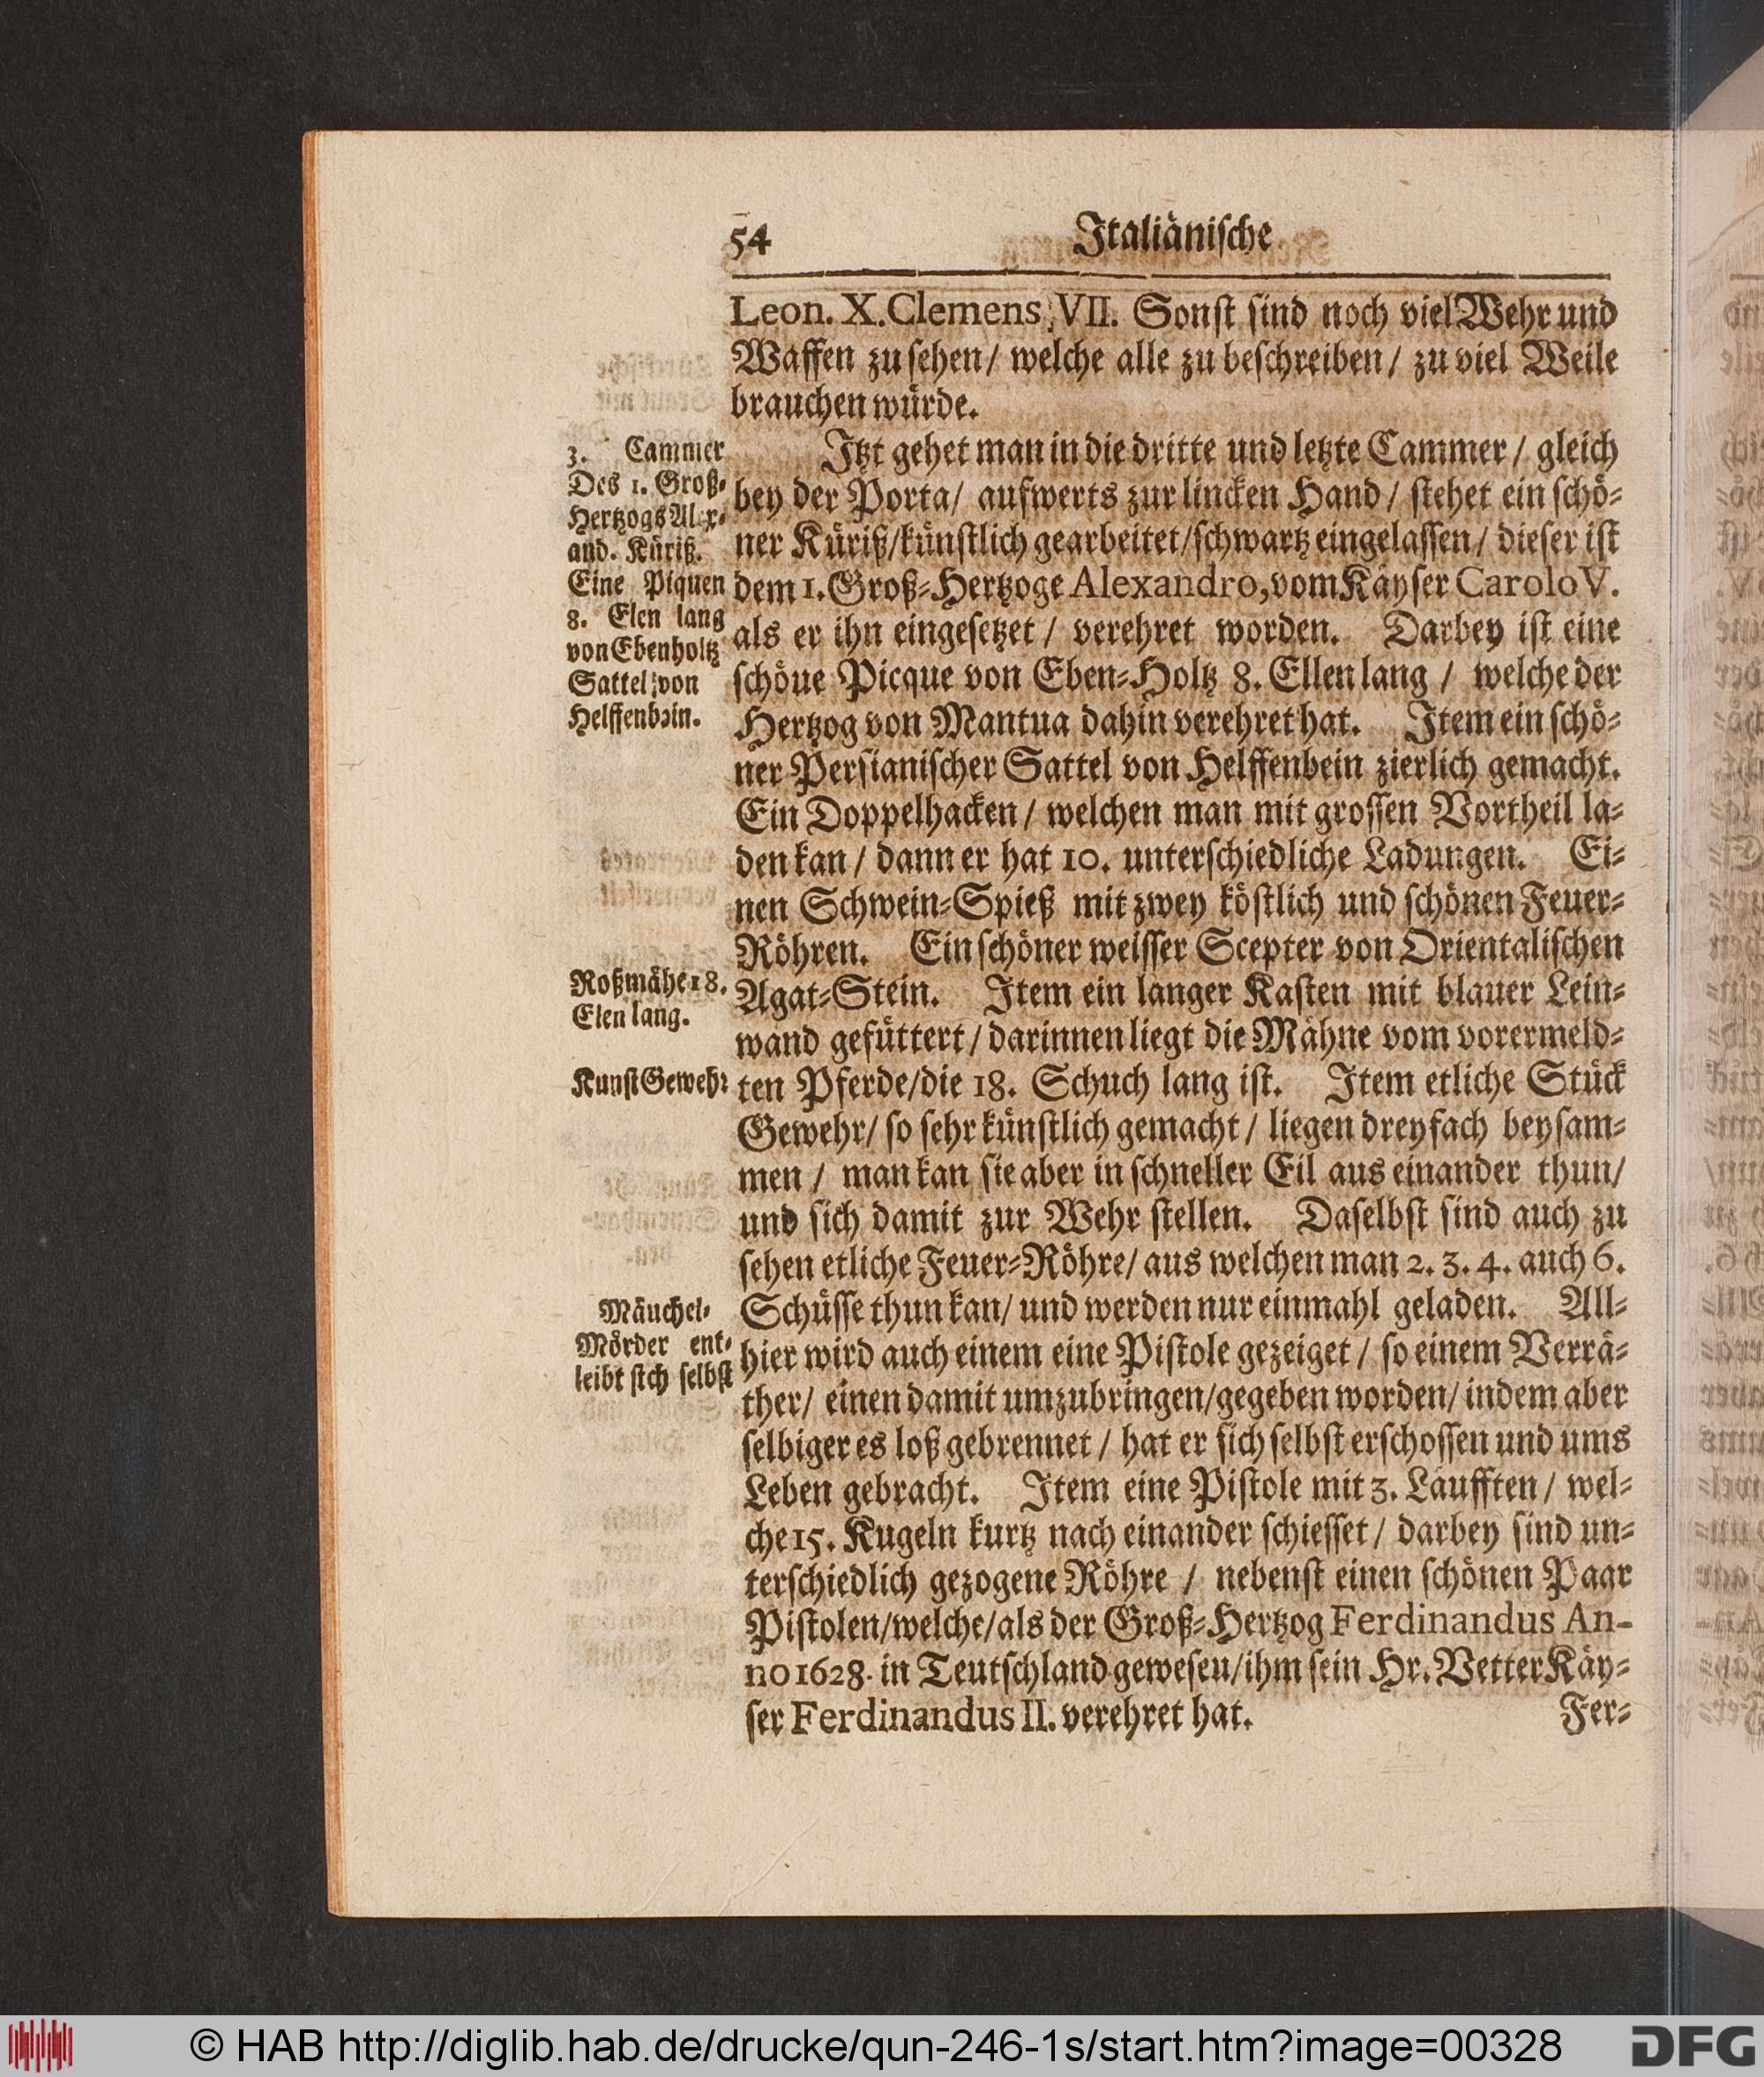 54 Italiänische
Leon. X. Clemens, VII. Sonſt ſind noch viel Wehr und
Waffen zu ſehen/ welche alle zu beſchreiben/ zu viel Weile
brauchen würde.
3. Cammer
Des 1. Groß-
Hertzogs Alex-
and. Küriß.
Eine Piquen
8. Elen lang
von Ebenholtz
Sattel von
Helffenbein.
Itzt gehet man in die dritte und letzte Cammer / gleich
bey der Porta/ aufwerts zur lincken Hand / ſtehet ein ſchö-
ner Küriß/künſtlich gearbeitet/ſchwartz eingelaſſen/ dieſer iſt
dem 1. Groß-Hertzoge Alexandro, vom Käyſer Carolo V.
als er ihn eingeſetzet / verehret worden. Darbey iſt eine
ſchöue Picque von Eben-Holtz 8. Ellen lang / welche der
Hertzog von Mantua dahin verehret hat. Item ein ſchö-
ner Perſianiſcher Sattel von Helffenbein zierlich gemacht.
Ein Doppelhacken / welchen man mit groſſen Vortheil la-
den kan / dann er hat 10. unterſchiedliche Ladungen. Ei-
nen Schwein-Spieß mit zwey köſtlich und ſchönen Feuer-
Röhren. Ein ſchöner weiſſer Scepter von Orientaliſchen
Roßmähe 18.
Elen lang.
Agat-Stein. Item ein langer Kaſten mit blauer Lein-
wand gefüttert / darinnen liegt die Mähne vom vorermeld-
Kunſt Gewehr
ten Pferde/die 18. Schuch lang iſt. Item etliche Stück
Gewehr/ ſo ſehr künſtlich gemacht / liegen dreyfach beyſam-
men / man kan ſie aber in ſchneller Eil aus einander thun/
und ſich damit zur Wehr ſtellen. Daſelbſt ſind auch zu
ſehen etliche Feuer-Röhre/ aus welchen man 2. 3. 4. auch 6.
Mäuchel-
Mörder ent-
leibt ſich ſelbſt
Schüſſe thun kan/ und werden nur einmahl geladen. All-
hier wird auch einem eine Piſtole gezeiget / ſo einem Verrä-
ther/ einen damit umzubringen/gegeben worden/ indem aber
ſelbiger es loß gebrennet / hat er ſich ſelbſt erſchoſſen und ums
Leben gebracht. Item eine Piſtole mit 3. Läufften / wel-
che 15. Kugeln kurtz nach einander ſchieſſet / darbey ſind un-
terſchiedlich gezogene Röhre / nebenſt einen ſchönen Paar
Piſtolen/welche/als der Groß-Hertzog Ferdinandus An-
no 1628. in Teutſchland geweſeu/ihm ſein Hr. Vetter Käy-
ſer Ferdinandus II. verehret hat. Fer-
© HAB http://diglib.hab.de/drucke/qun-246-1s/start.htm?image=00328
DFG